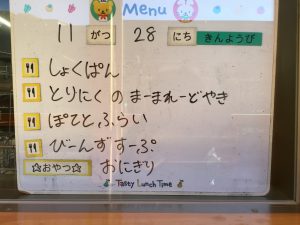 Menu
11 がつ 28 にち きんようび
しょくぱん
とりにくのまーまれーどやき
ぽてとふらい
びーんずすーぷ
☆おやつ☆ おにぎり
Tasty Lunch Time